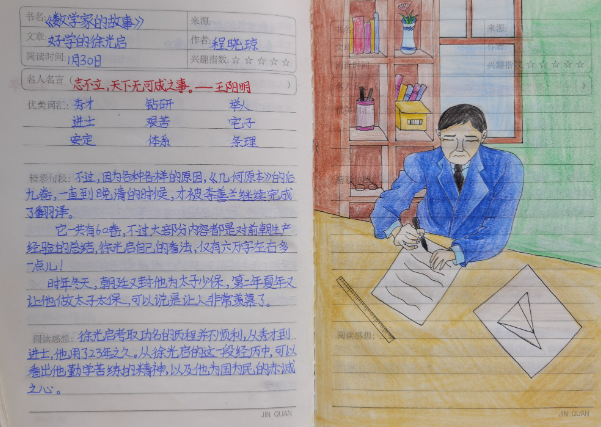 书名:《数学家的故事》 来源:
文章: 好学的徐光启 作者: 程晓琼
阅读时间: 1月30日 兴趣指数: ☆ ☆ ☆ ☆ ☆
名人名言(志不立,天下无可成之事。——王阳明)
优美词汇: 秀才 钻研 举人
进士 艰苦 宅子
安定 体系 条理
精彩句段: 不过,因为各种各样的原因,《几何原本》的后
九卷,一直到晚清的时候,才被李善兰继续完成
了翻译。
它一共有60卷,不过大部分内容都是对前朝生产
经验的总结,徐光启自己的看法,仅有六万字左右多
一点儿!
时年冬天,朝廷又封他为太子少保,第二年夏天又
让他做太子太保,可以说是让人非常羡慕了。
阅读感想: 徐光启考取功名的历程并不顺利,从秀才到
进士,他用了23年之久。从徐光启的这一段经历中,可以
看出他勤学苦练的精神,以及他为国为民的赤诚
之心。
JIN QUAN
兴趣指数: ☆ ☆ ☆ ☆ ☆
阅读感想:
JIN QUAN